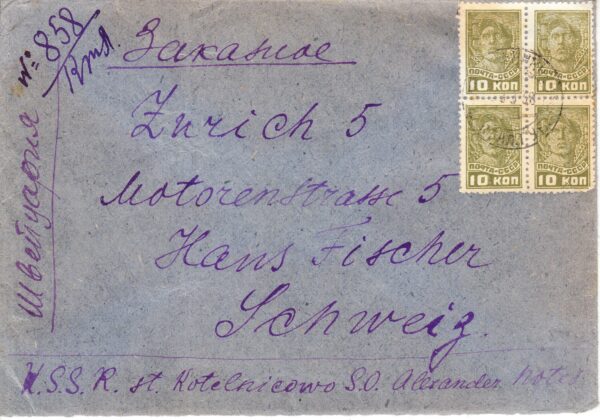 № 858
Заказное
ПОЧТА СССР
10 КОП
ПОЧТА СССР
10 КОП
ПОЧТА СССР
10 КОП
ПОЧТА СССР
10 КОП
Швейцария
Zürich 5
Motorenstrasse 5
Hans Fischer
Schweiz.
U.S.S.R. st. Kotelnicowo S.O. Alexander